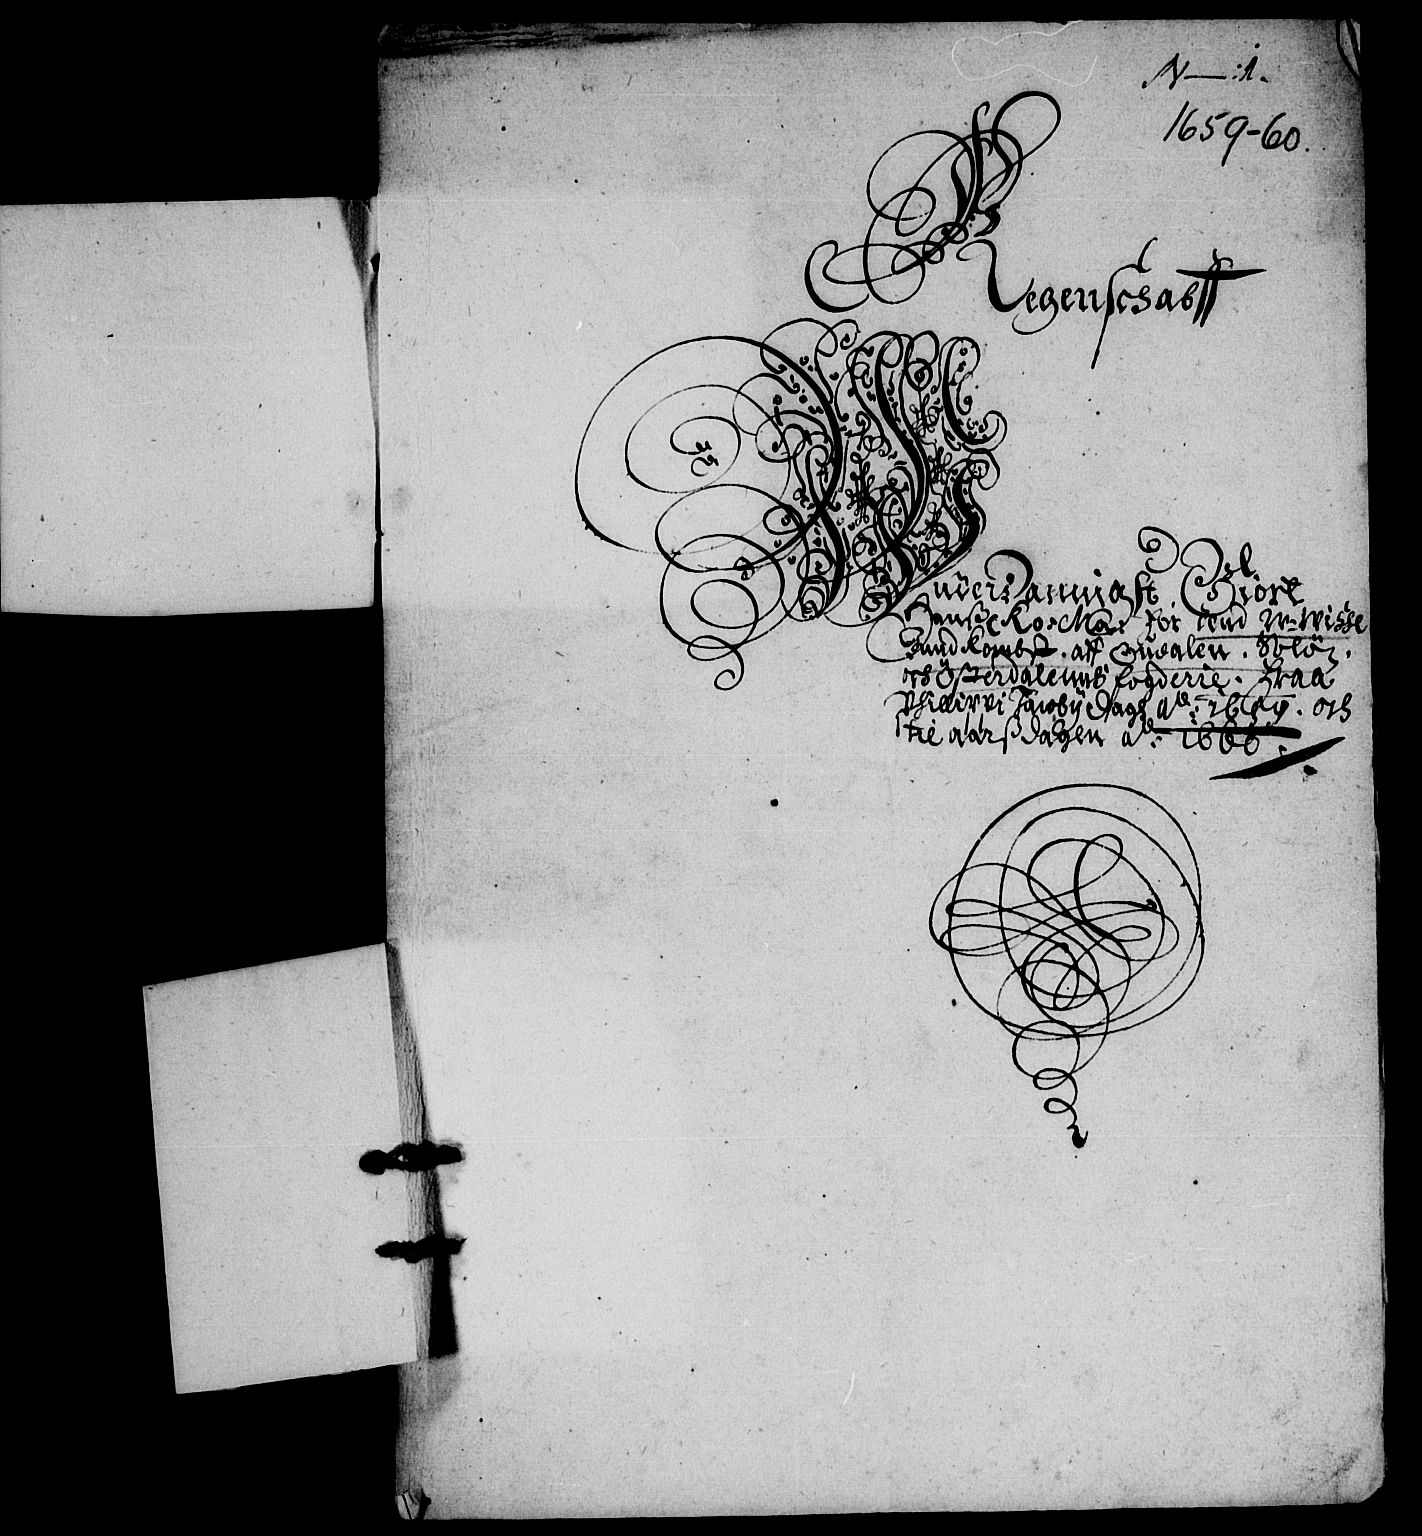 N—:1.
1659-60.
Regenschabff
Underdannigst Giort
Hans Ko: Ma: for dend W-Wisse
Indkombst. aff Gudalen. Soløer.
och Østerdalenns fogderie. Fraa
Phillippi Jacobj Dags Ao: 1659. och
tie aarsdagen Ao: 1660.